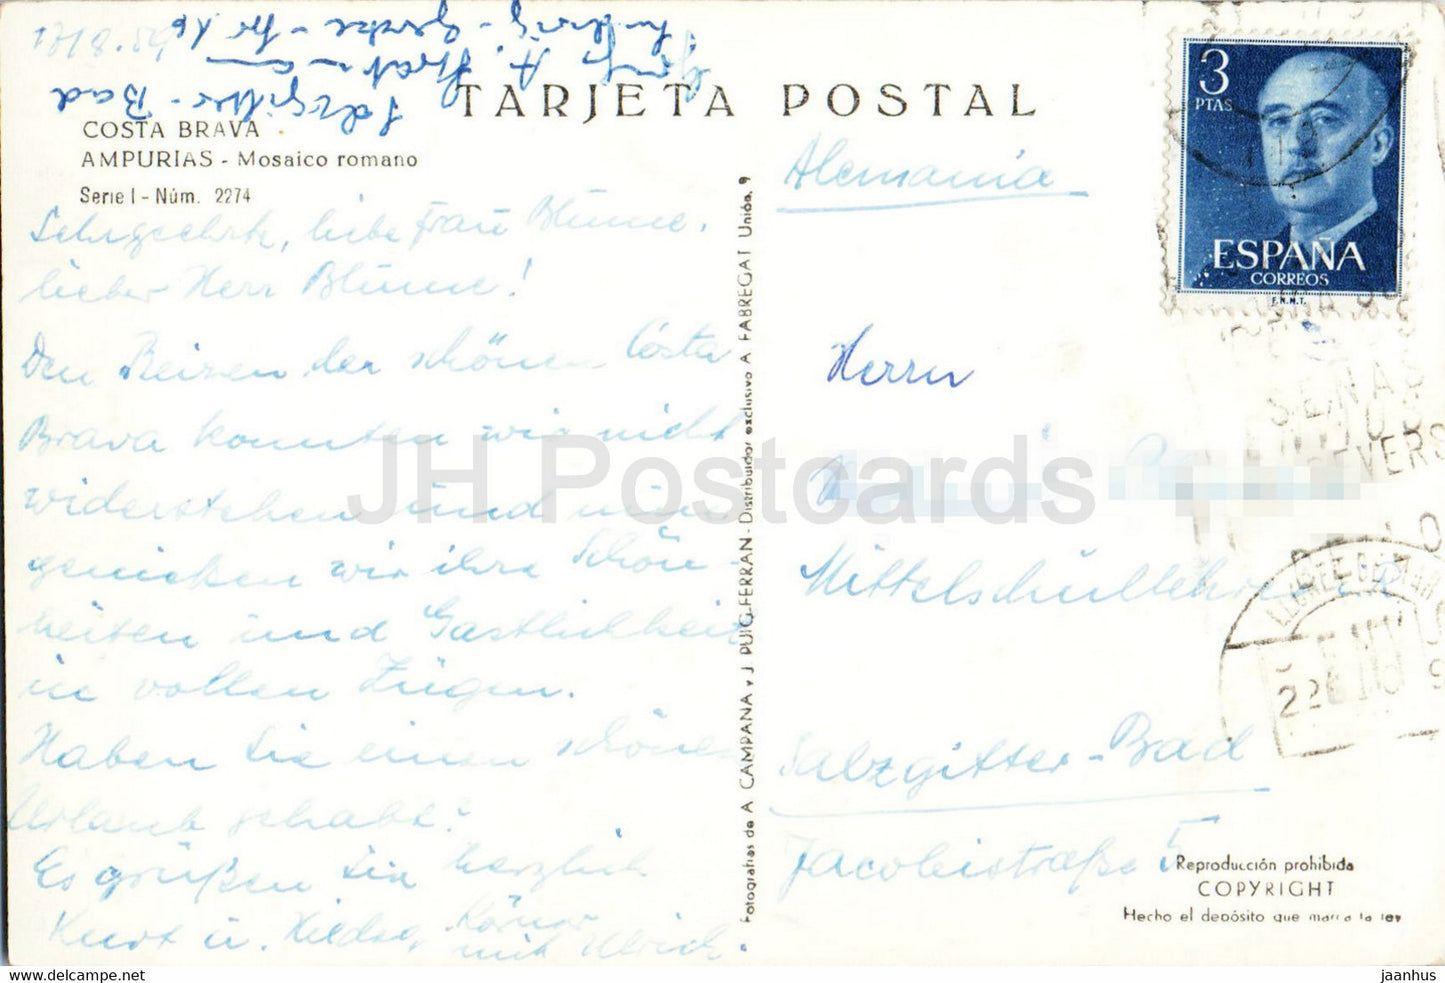 TARJETA POSTAL
COSTA BRAVA
AMPURIAS - Mosaico romano
Serie I - Núm. 2274
Salzgitter-Bad
Sehrgeehrte, liebe Frau Blume,
lieber Herr Blume!
Den Reizen der schönen Costa
Brava konnten wir nicht
widerstehen und nun
genießen wir ihre Schön-
heiten und Gastlichkeit
in vollen Zügen.
Haben Sie einen schönen
Urlaub gehabt?
Es grüßen Sie herzlich
Kurt u. mit Ulrich.
Fotografias de A CAMPAÑA y J PUIG-FERRAN - Distribuidor exclusivo A FABREGAT Unión, 9
Alemania
Herrn
Mittelschullehrer
Salzgitter-Bad
Jacobistraße 5
3
PTAS
ESPAÑA
CORREOS
F.N.M.T.
SENAS
LLORET DE MAR
Reproducción prohibida
COPYRIGHT
Hecho el depósito que marca la ley
JH Postcards
www.delcampe.net
jaanhus